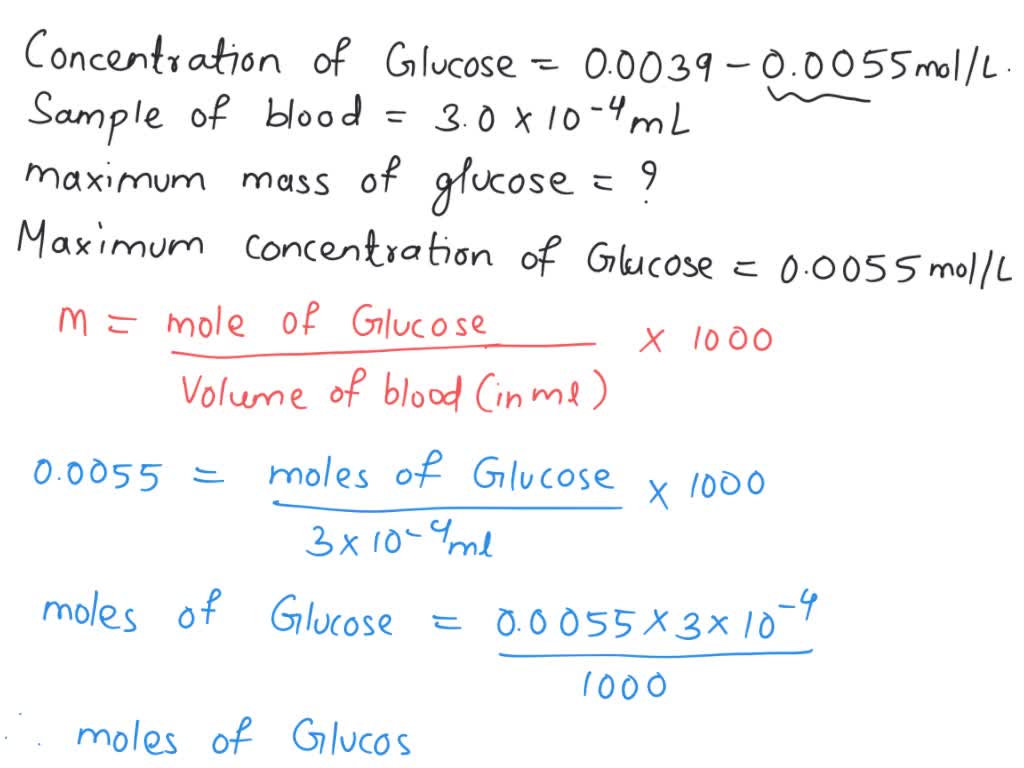 Concentration of Glucose = 0.0039 - 0.0055 mol/L.
Sample of blood = 3.0 x 10^-4 mL
maximum mass of glucose = ?
Maximum concentration of Glucose = 0.0055 mol/L
M = mole of Glucose / Volume of blood (in ml) x 1000
0.0055 = moles of Glucose / 3 x 10^-4 ml x 1000
moles of Glucose = 0.0055 x 3 x 10^-4 / 1000
∴ moles of Glucos